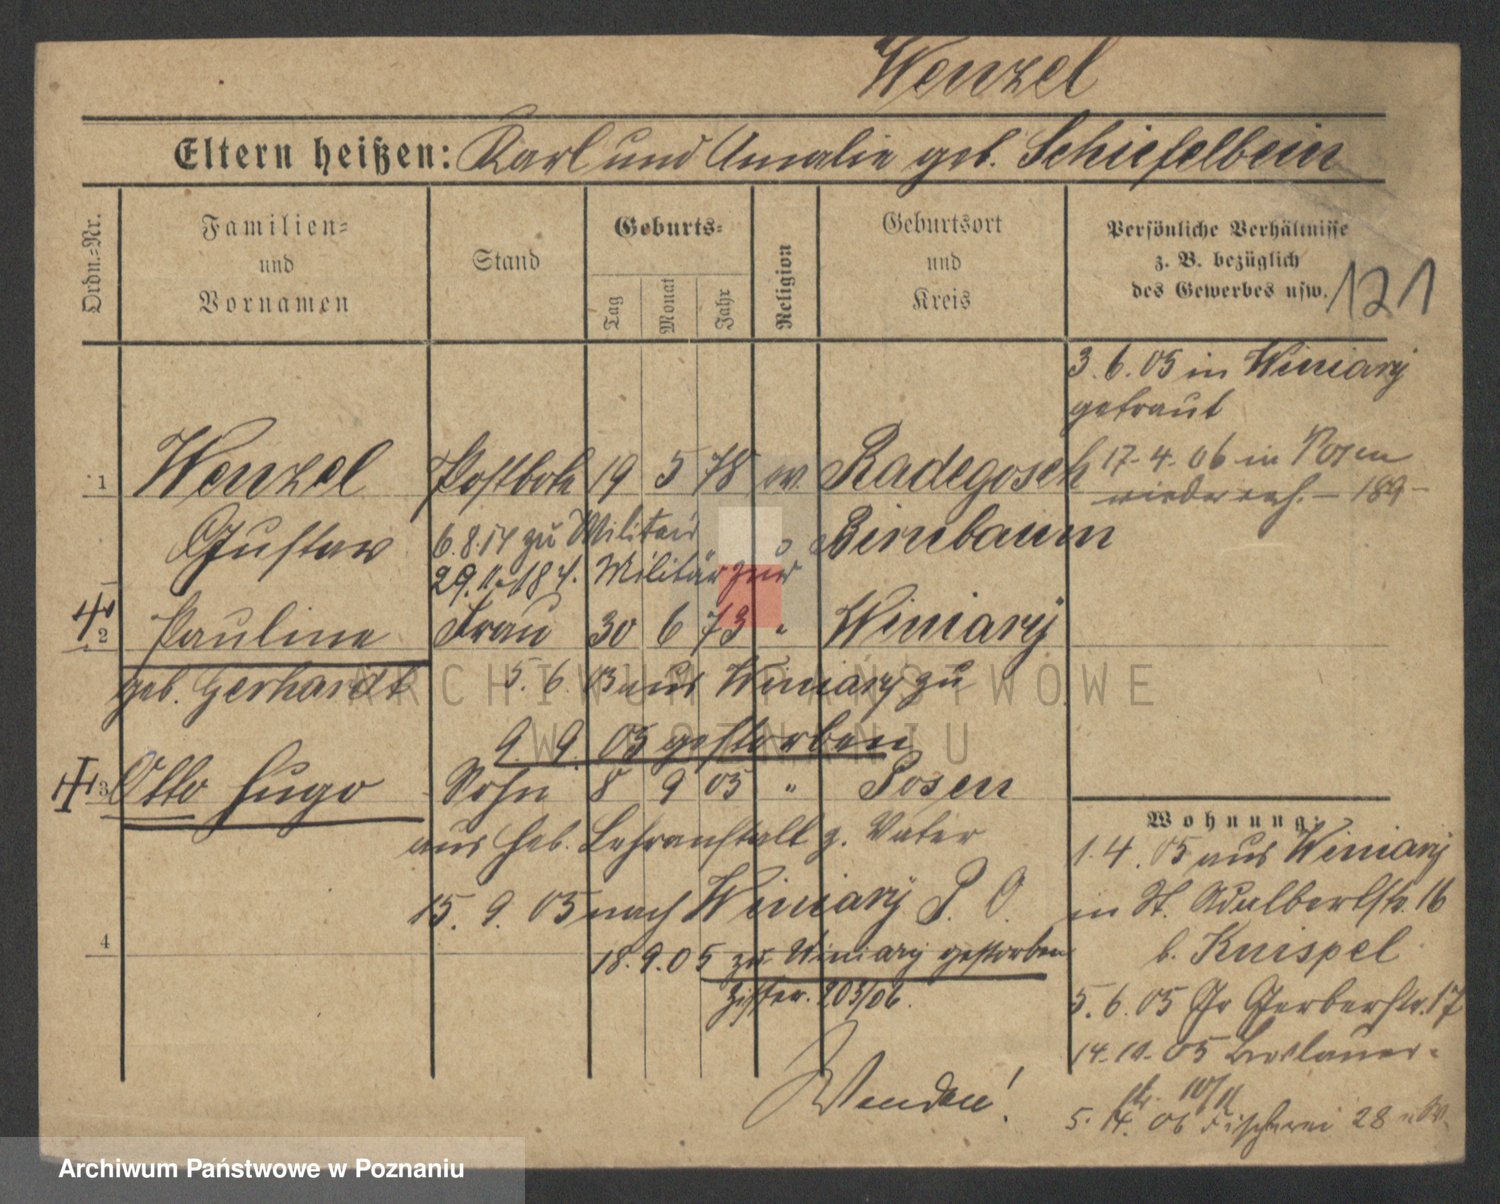 Wenzel
Eltern heißen: Karl und Amalie geb. Schiefelbein
Ordn.-Nr.
Familien-
und
Vornamen
Stand
Geburts-
Tag
Monat
Jahr
Religion
Geburtsort
und
Kreis
Persönliche Verhältnisse
z. B. bezüglich
des Gewerbes usw.
121
3. 6. 05 in Winiary
getraut
1 Wenzel Postbote 19 5 78 ev. Radegosch
17. 4. 06 in Posen
wiederverh. – 189 –
Gustav 6.8.14 zu Militär Birnbaum
29. 11. 18 v. Militär zur
2 Pauline Frau 30 6 73 " Winiary
geb. Gerhardt 5. 6. 03 aus Winiary zu
9. 9. 05 gestorben
3 Otto Hugo Sohn 8 9 05 " Posen
aus Heb. Lehranstalt z. Vater
15. 9. 05 nach Winiary P. O.
4
18. 9. 05 zu Winiary gestorben
Ziffer. 203/06.
Wenden!
Wohnung:
1. 4. 05 aus Winiary
in St. Adalbertstr. 16
b. Knispel
5. 6. 05 Gr Gerberstr. 17
14. 10. 05 Breslauer-
str. 10/11
5. 14. 06 Fischerei 28
ARCHIWUM PAŃSTWOWE
W POZNANIU
Archiwum Państwowe w Poznaniu